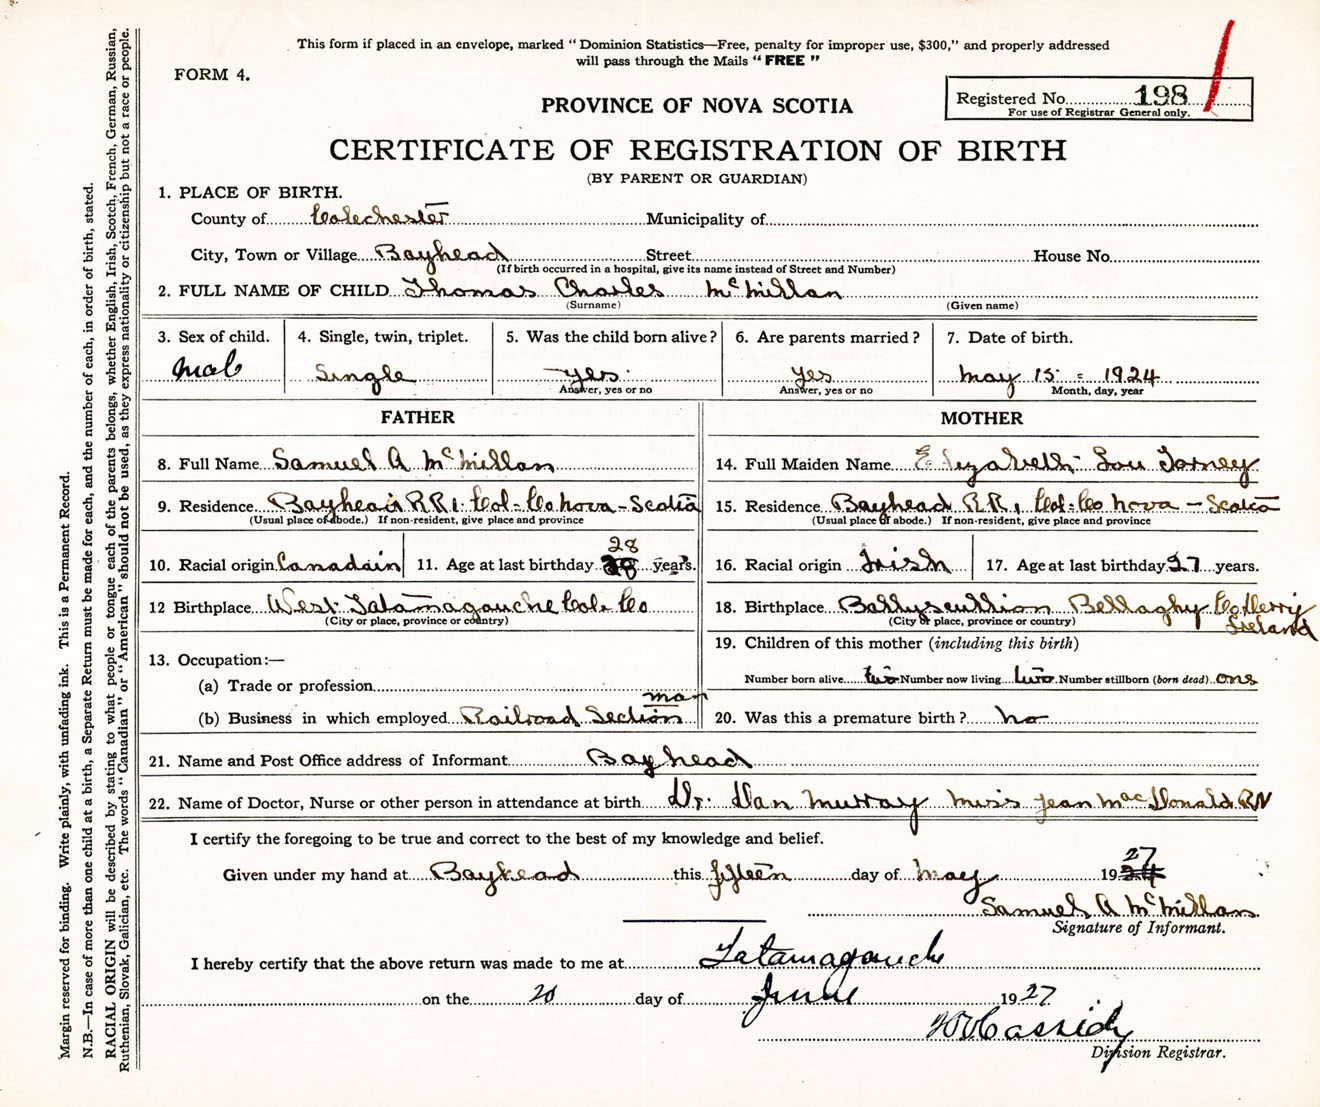 This form if placed in an envelope, marked “Dominion Statistics—Free, penalty for improper use, $300,” and properly addressed
will pass through the Mails “FREE”
FORM 4.
Registered No. 198
For use of Registrar General only.
PROVINCE OF NOVA SCOTIA
CERTIFICATE OF REGISTRATION OF BIRTH
(BY PARENT OR GUARDIAN)
1. PLACE OF BIRTH.
County of Colechester Municipality of
City, Town or Village Bayhead Street House No.
(If birth occurred in a hospital, give its name instead of Street and Number)
2. FULL NAME OF CHILD Thomas Charles McMillan
(Surname) (Given name)
3. Sex of child. 4. Single, twin, triplet. 5. Was the child born alive? 6. Are parents married? 7. Date of birth.
male Single yes yes May 15 = 1924
Answer, yes or no Answer, yes or no Month, day, year
FATHER MOTHER
8. Full Name Samuel A McMillan 14. Full Maiden Name Elizabeth Lou Torney
9. Residence Bayhead RR1. Col. Co Nova-Scotia 15. Residence Bayhead R.R1 Col. Co Nova - Scotia
(Usual place of abode.) If non-resident, give place and province (Usual place of abode.) If non-resident, give place and province
10. Racial origin Canadain 11. Age at last birthday 28 years. 16. Racial origin Irish 17. Age at last birthday 27 years.
12 Birthplace West Tatamagouche Col. Co 18. Birthplace Ballyscullion Bellaghy Co Derry Ireland
(City or place, province or country) (City or place, province or country)
19. Children of this mother (including this birth)
13. Occupation:—
(a) Trade or profession Number born alive two Number now living two Number stillborn (born dead) one
(b) Business in which employed Railroad Section man 20. Was this a premature birth? no
21. Name and Post Office address of Informant Bayhead
22. Name of Doctor, Nurse or other person in attendance at birth Dr. Dan Murray Miss Jean MacDonald RN
I certify the foregoing to be true and correct to the best of my knowledge and belief.
Given under my hand at Bayhead this fifteen day of May 1927
Samuel A McMillan
Signature of Informant.
I hereby certify that the above return was made to me at Tatamagouche
on the 20 day of June 1927
Cassidy
Division Registrar.
Margin reserved for binding. Write plainly, with unfading ink. This is a Permanent Record.
N.B.—In case of more than one child at a birth, a Separate Return must be made for each, and the number of each, in order of birth, stated.
RACIAL ORIGIN will be described by stating to what people or tongue each of the parents belongs, whether English, Irish, Scotch, French, German, Russian,
Ruthenian, Slovak, Galician, etc. The words “Canadian” or “American” should not be used, as they express nationality or citizenship but not a race or people.